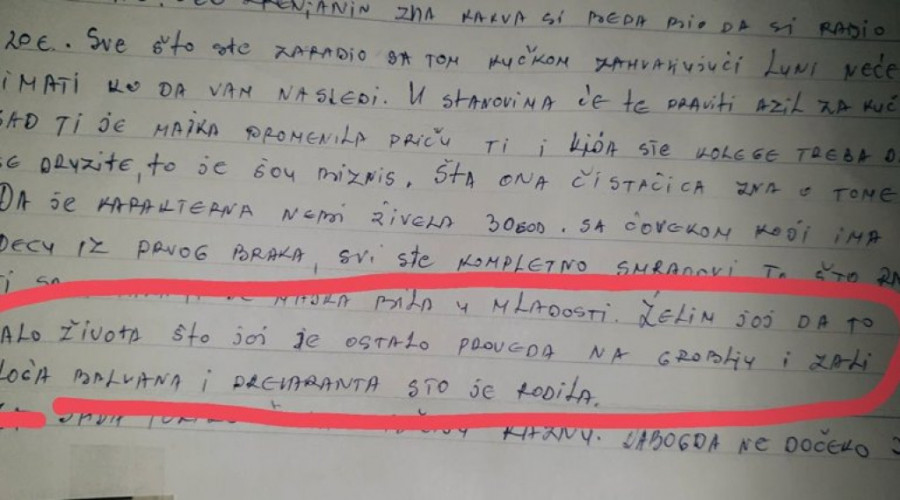 ZRENJANIN ZNA KAKVA SI BEDA BIO DA SI RADIO
20€. Sve što ste ZARADIO SA TOM KUČKOM ZAHVALJUJUĆI LUNI NEĆE
IMATI KO DA VAM NASLEDI. U STANOVIMA ĆE TE PRAVITI AZIL ZA KUČ
SAD TI JE MAJKA PROMENILA PRIČU TI I KIJA STE KOLEGE TREBA D
SE DRUZITE, to je šou BIZNIS. ŠTA ONA ČISTAČICA ZNA O TOME
DA JE KARAKTERNA NEBI ŽIVELA 30GOD. SA ČOVEKOM KOJI IMA
DECU IZ PRVOG BRAKA, svi ste KOMPLETNO SMRADOVI TO ŠTO
JE MAJKA BILA U MLADOSTI. ŽELIM joj DA TO
ALO ŽIVOTA što joj je OSTALO PROVEDA NA GROBLJU i ZALI
LOĆA BALVANA i DREKARANTA STO JE RODILA.
KAZNU. DABOGDA NE DOČEKO